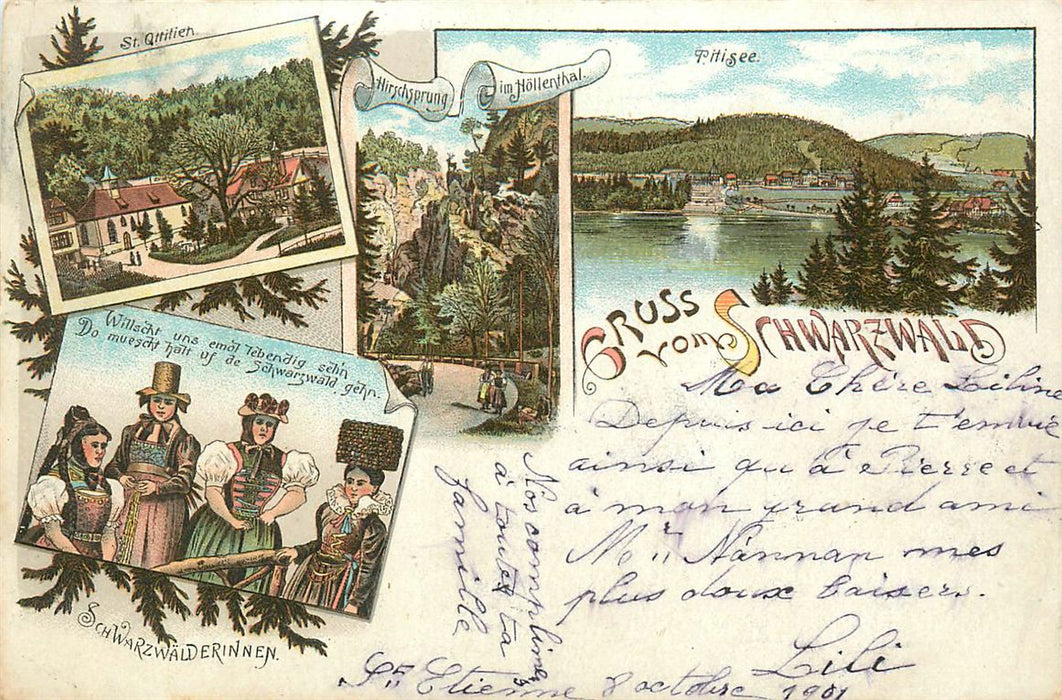 St. Ottilien.
Hirschsprung
im Höllenthal.
Titisee.
Gruss
vom Schwarzwald
Willscht uns emol lebendig sehn
Do muescht halt uf de Schwarzwald gehn.
Schwarzwälderinnen.
Ma Chère Liline
Depuis ici je t'envoie
ainsi qu'à Pierre et
à mon grand ami
Mr Nannan mes
plus doux baisers.
Lili
St Etienne 8 octobre 1901
Nos complim
à toute ta
famille